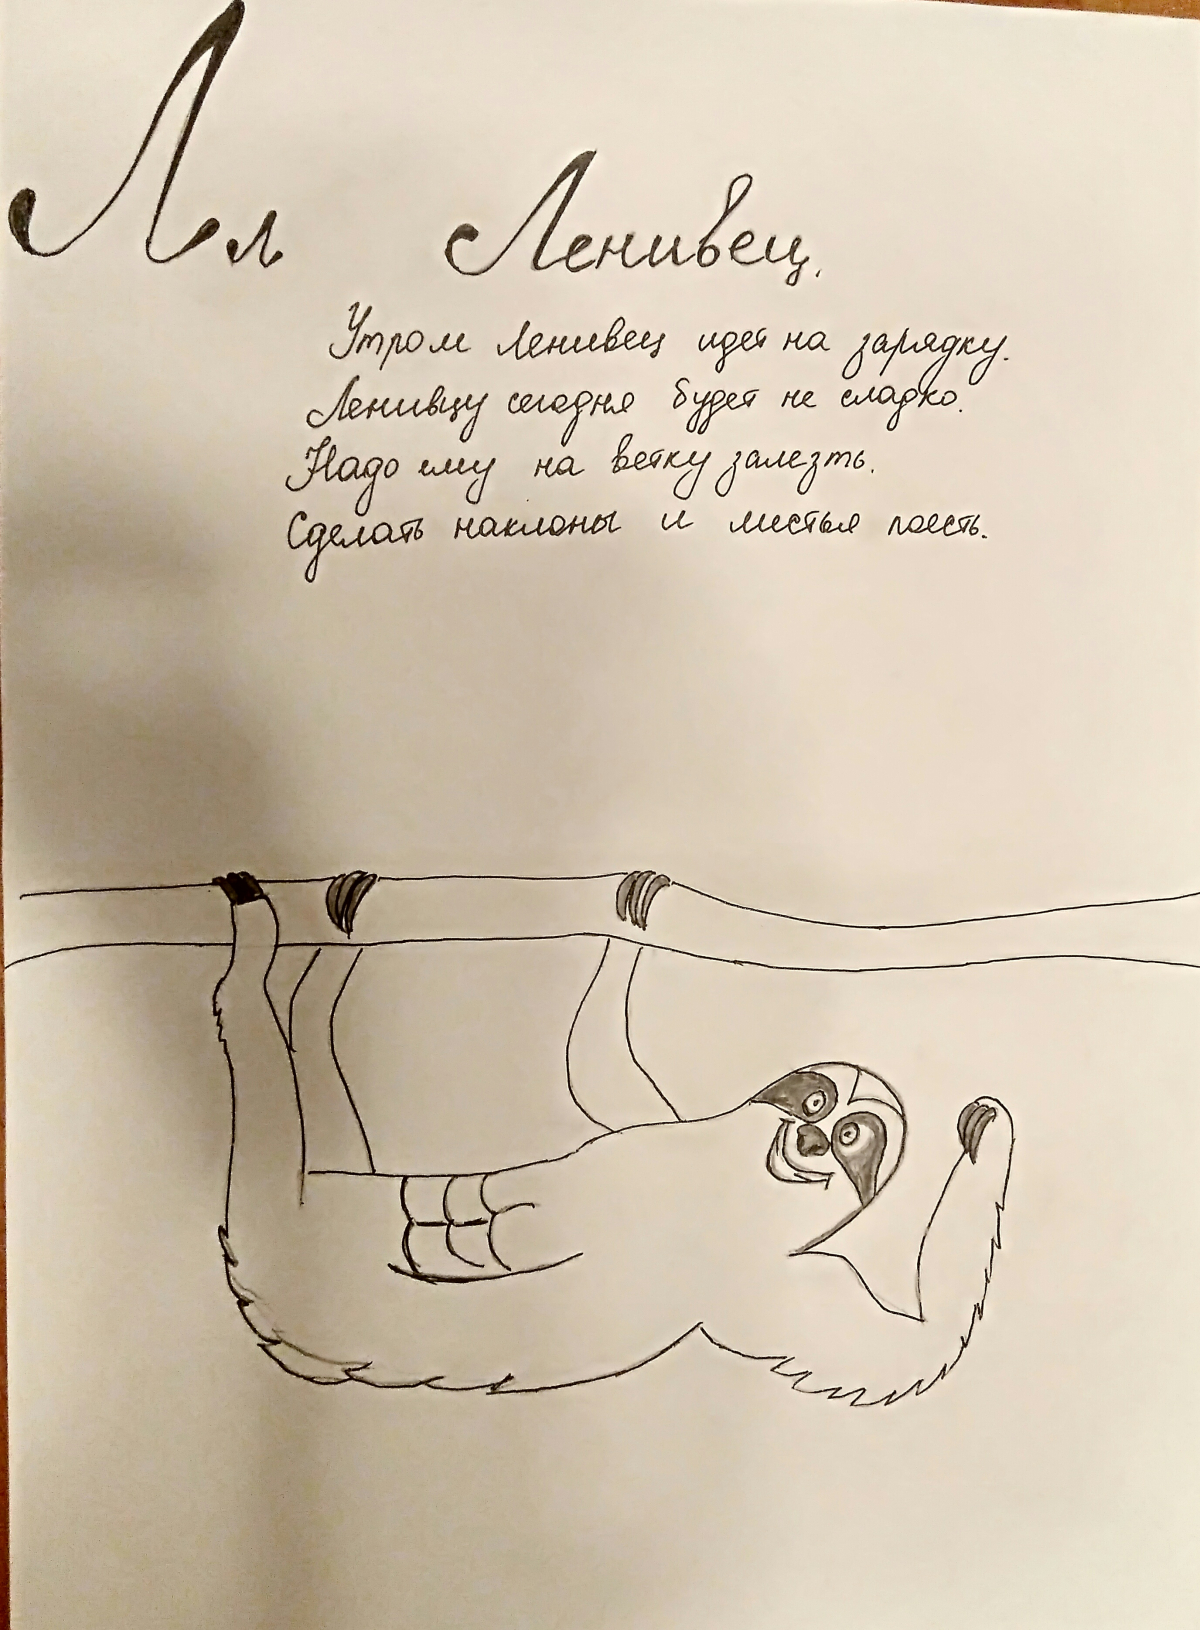 Лл Ленивец.
Утром Ленивец идет на зарядку.
Ленивцу сегодня будет не сладко.
Надо ему на ветку залезть.
Сделать наклоны и листья поесть.